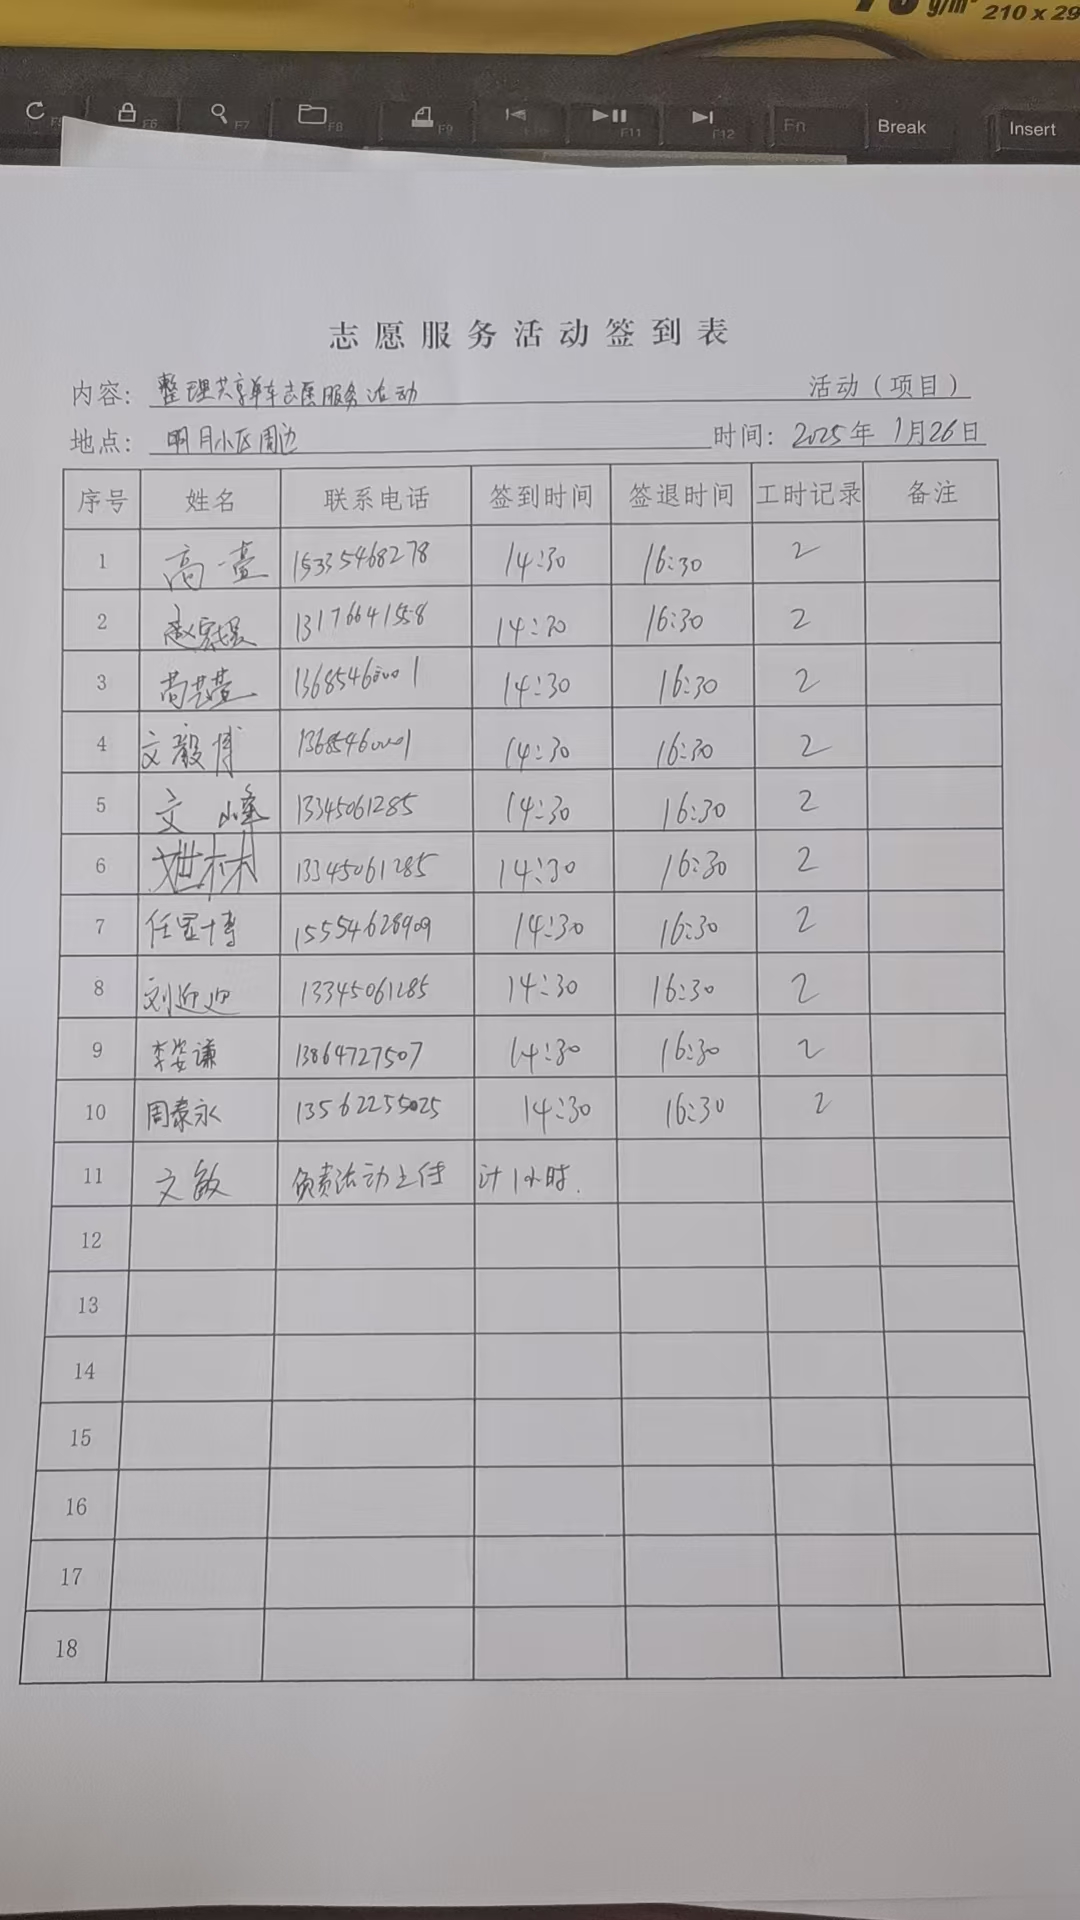 g/m² 210 x 29
F6 F7 F8 F9 F11 F12 Fn Break Insert
志愿服务活动签到表
内容: 整理共享单车志愿服务活动 活动（项目）
地点: 明月小区周边 时间: 2025年 1月26日
序号 姓名 联系电话 签到时间 签退时间 工时记录 备注
1 高一萱 15335468278 14:30 16:30 2
2 赵 13176641558 14:30 16:30 2
3 13685460001 14:30 16:30 2
4 文毅博 13685460001 14:30 16:30 2
5 文峰 13345061285 14:30 16:30 2
6 林 13345061285 14:30 16:30 2
7 任 博 15554628909 14:30 16:30 2
8 刘迎迎 13345061285 14:30 16:30 2
9 李姿谦 13864727507 14:30 16:30 2
10 周泰永 13562255025 14:30 16:30 2
11 文敏 负责活动上传 计1小时.
12
13
14
15
16
17
18